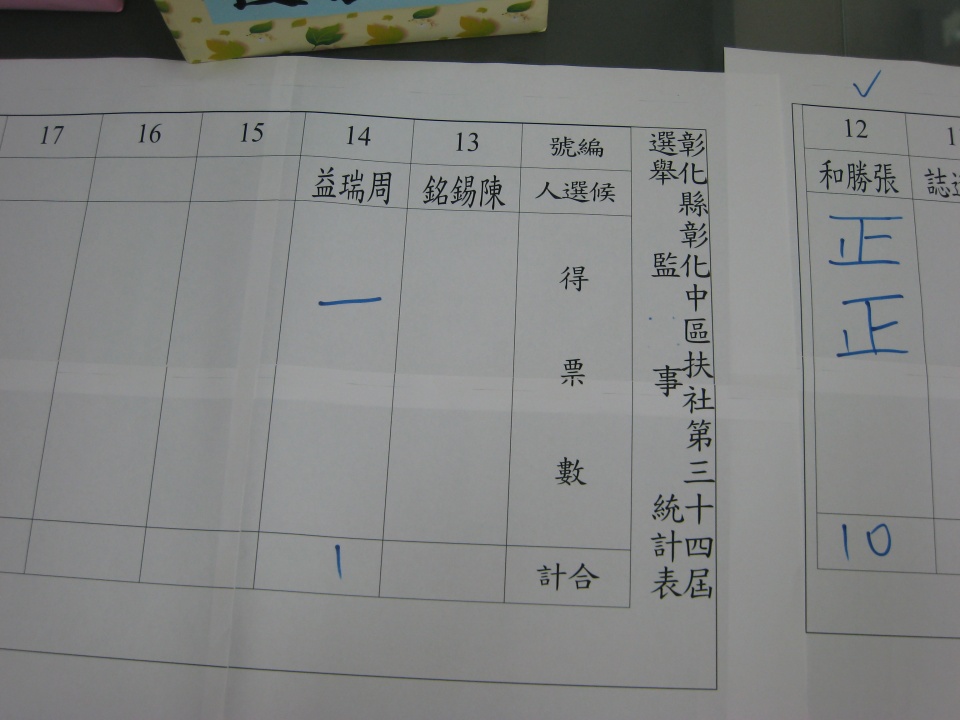 彰化縣彰化中區扶社第三十四屆
選舉監事統計表
編號 13 14 15 16 17
候選人 陳錫銘 周瑞益
得票數 一
合計 1
✓
12
張勝和
正
正
10